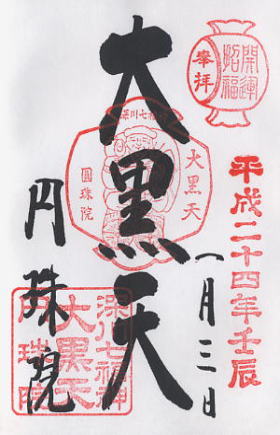 開運
招福
奉拝
平成二十四年壬辰
一月三日
深川七福神
大黒天
圓珠院
大黒天
円珠院
深川七福神
大黒天
円珠院